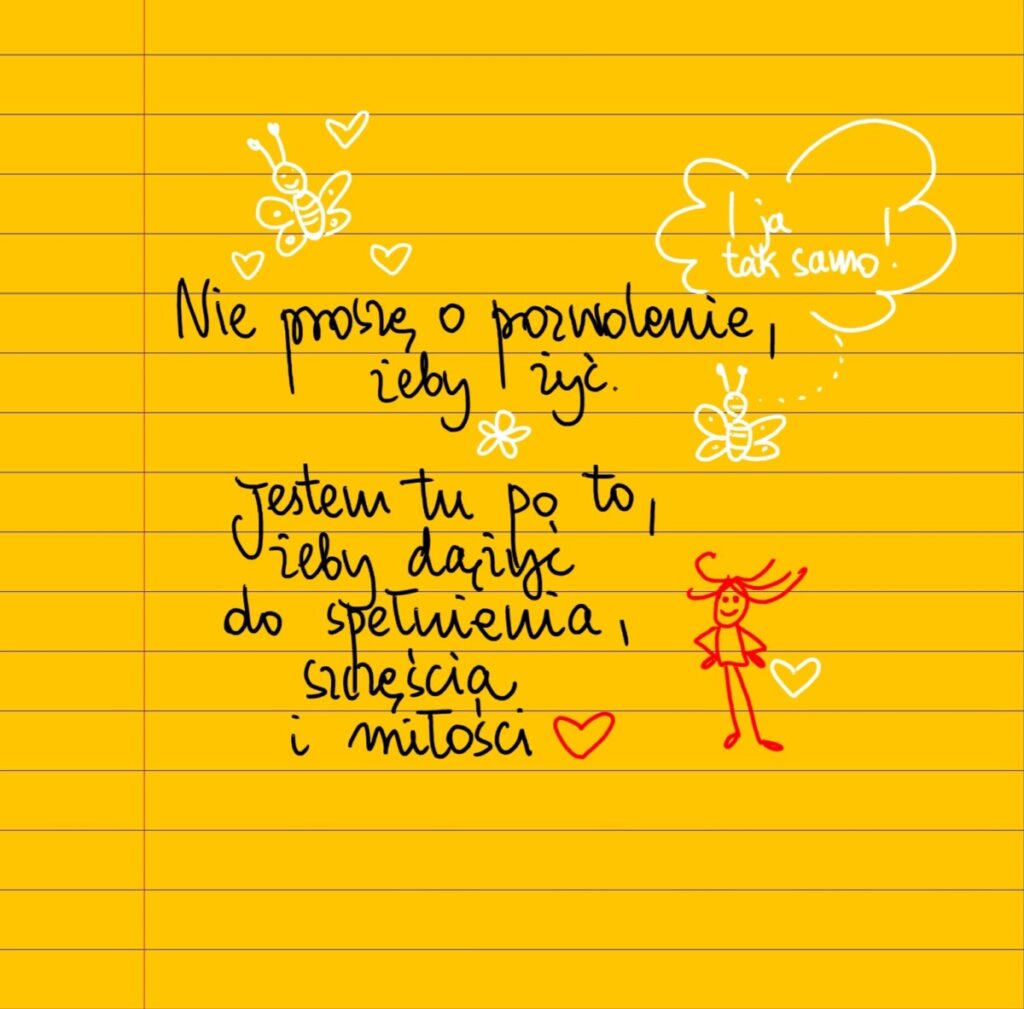 I ja
tak samo!
Nie proszę o pozwolenie,
żeby żyć.
Jestem tu po to,
żeby dążyć
do spełnienia,
szczęścia
i miłości